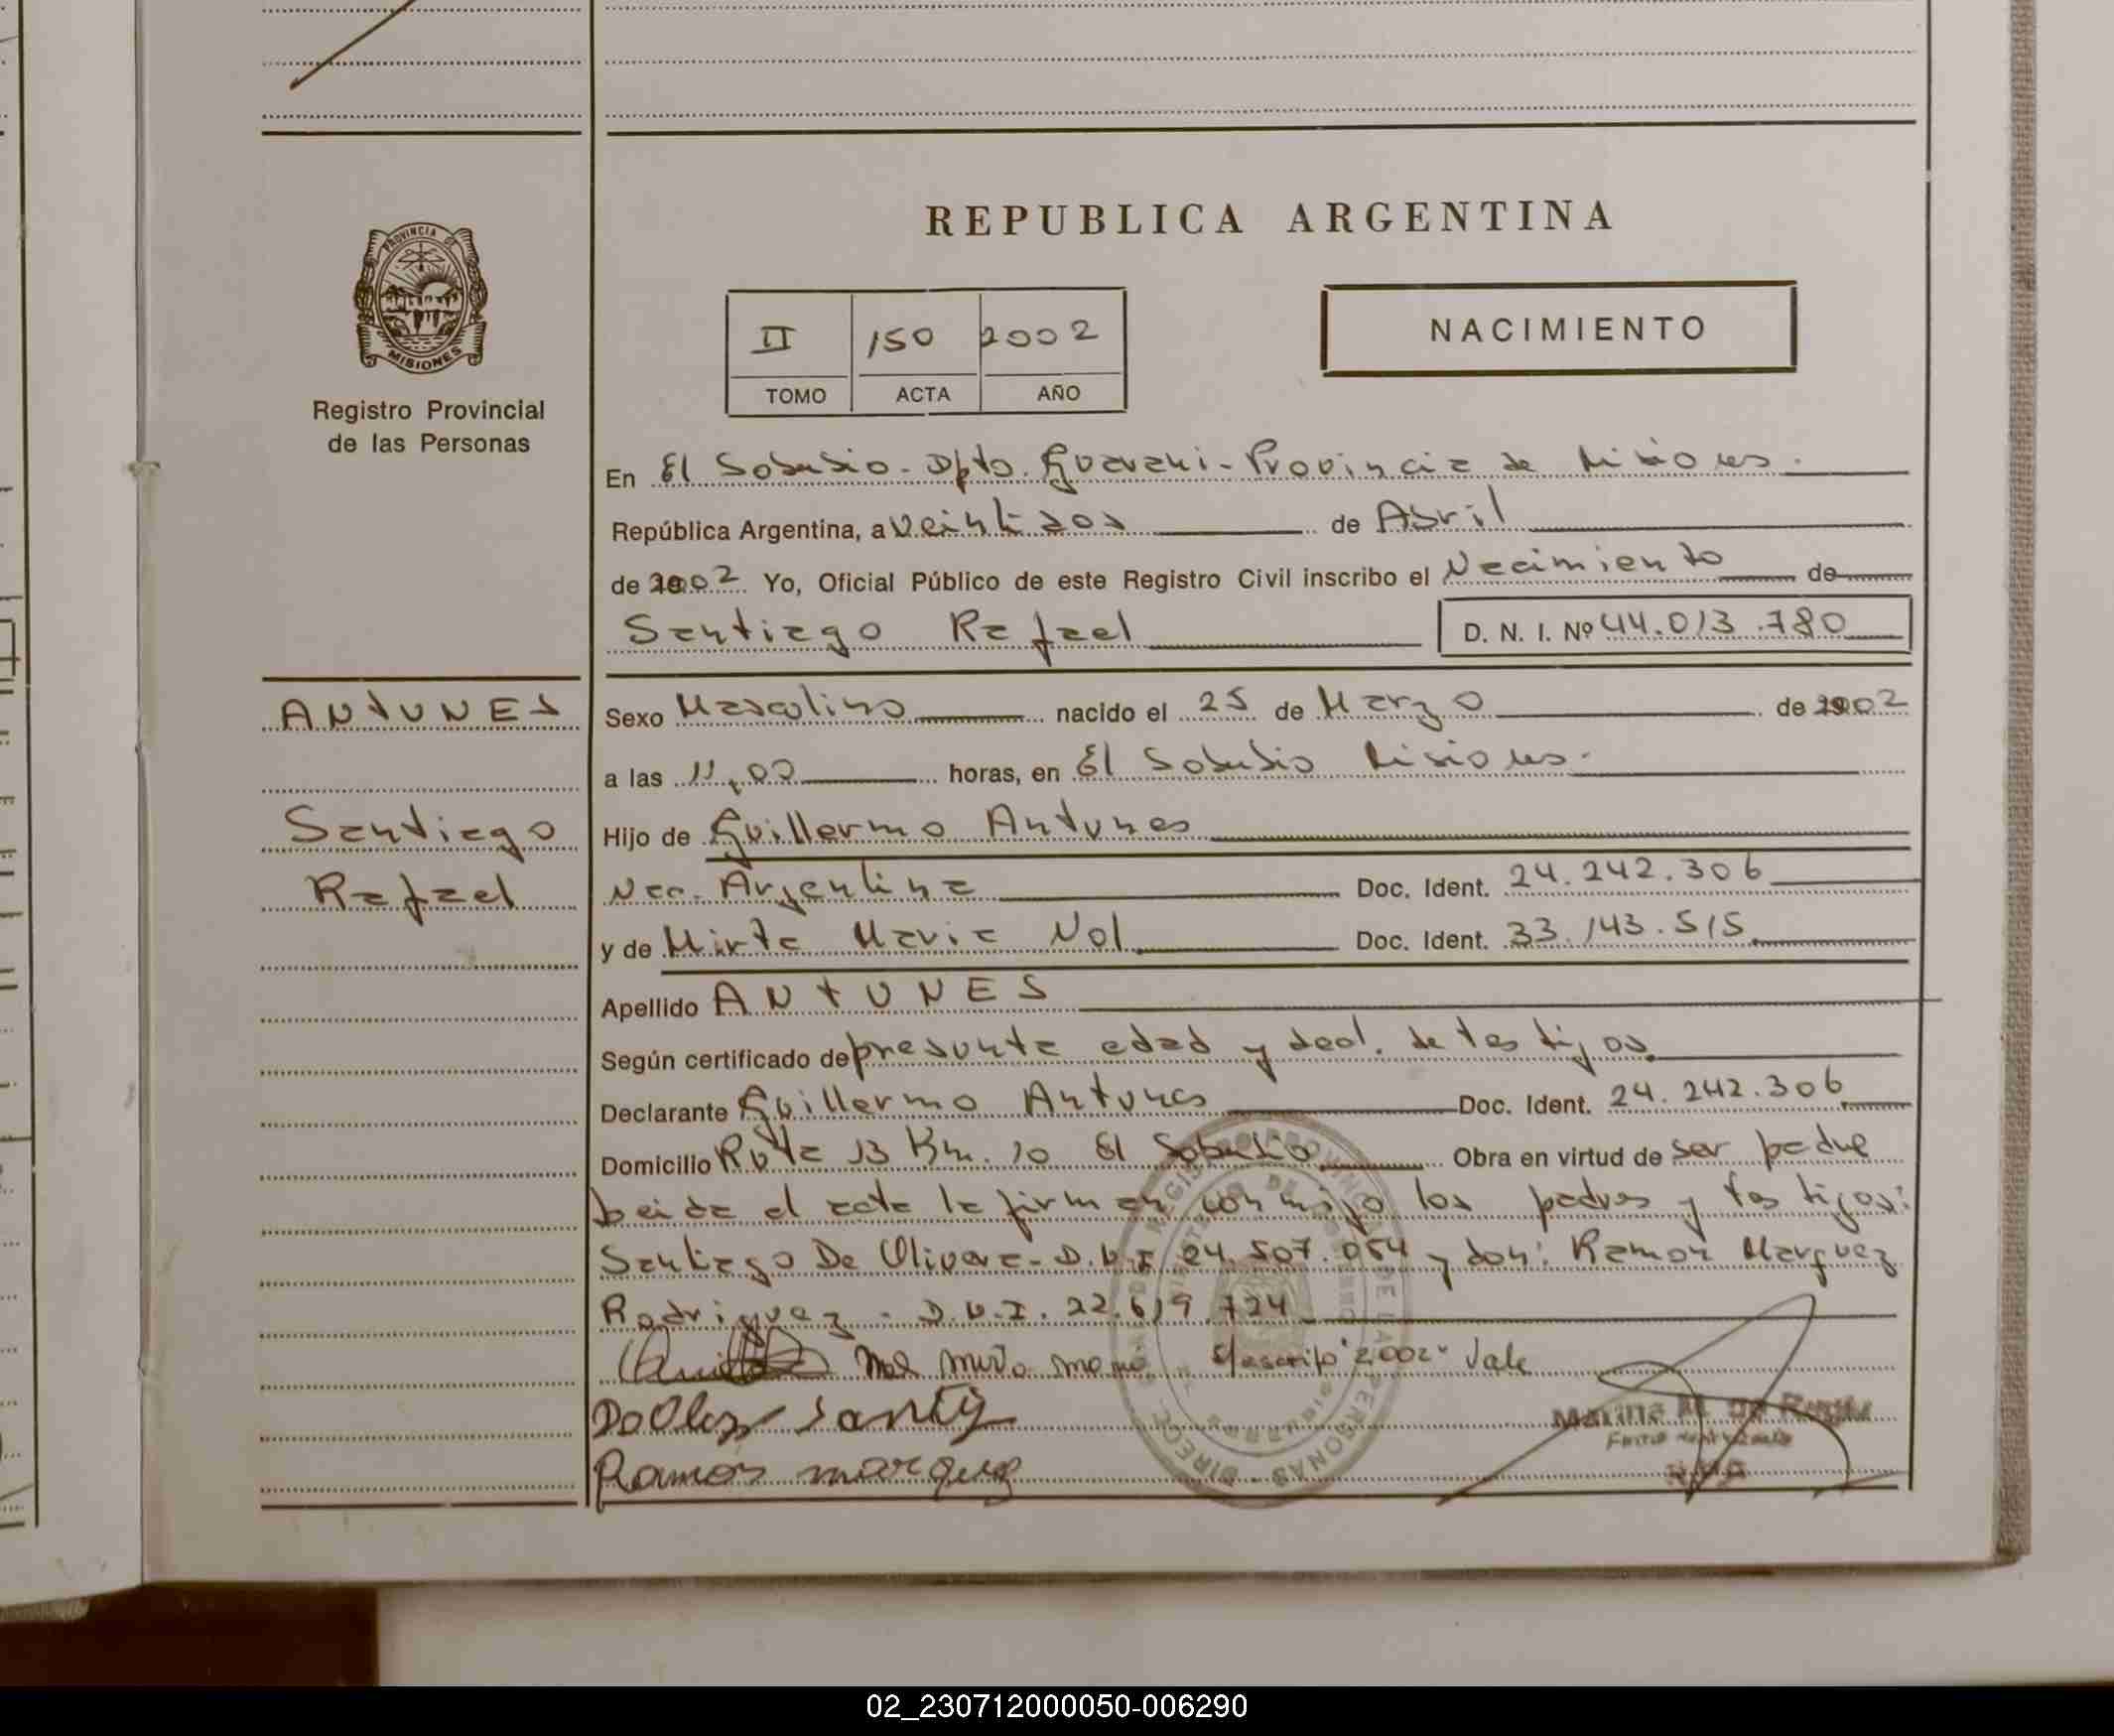 REPUBLICA ARGENTINA
PROVINCIA DE
MISIONES
Registro Provincial
de las Personas
II 150 2002
TOMO ACTA AÑO
NACIMIENTO
En El Soberbio - Dpto. Guarani - Provincia de Misiones.
República Argentina, a veintidos de Abril
de 2002 Yo, Oficial Público de este Registro Civil inscribo el Nacimiento de
Santiago Rafael D. N. I. Nº 44.013.780
ANTUNES
Santiago
Rafael
Sexo Masculino nacido el 25 de Marzo de 2002
a las 11,00 horas, en El Soberbio Misiones.
Hijo de Guillermo Antunes
Nac. Argentina Doc. Ident. 24.242.306
y de Mirta Maria Nol Doc. Ident. 33.143.515
Apellido ANTUNES
Según certificado de presunta edad y decl. de testigos.
Declarante Guillermo Antunes Doc. Ident. 24.242.306
Domicilio Ruta 13 Km. 10 El Soberbio Obra en virtud de ser padre
Leida el acta la firman conmigo los padres y testigos:
Santiago De Olivera - D.N.I. 24.507.054 y don: Ramon Marquez
Rodriguez - D.N.I. 22.619.724
Nol Mirta Maria S/escrito "2002" Vale
Ramon marquez
Marina M. de
02_230712000050-006290